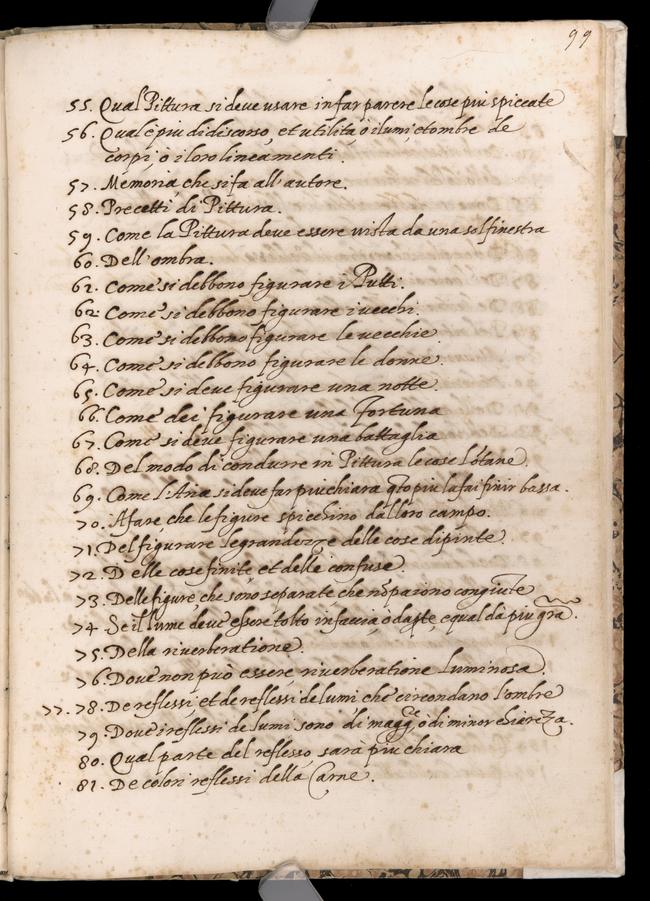 99
55. Qual Pittura si deve usare in far parere le cose piu spiccate
56. Qual è piu di discorso, et utilità, o i lumi, et ombre de
corpi, o i loro lineamenti.
57. Memoria, che si fa all'autore.
58. Precetti di Pittura.
59. Come la Pittura deve essere vista da una sol finestra
60. Dell'ombra.
61. Come si debbono figurare i Putti.
62. Come si debbono figurare i vecchi.
63. Come si debbono figurare le vecchie.
64. Come si debbono figurare le donne.
65. Come si deve figurare una notte.
66. Come dei figurare una Fortuna
67. Come si deve figurare una battaglia
68. Del modo di condurre in Pittura le cose lõtane.
69. Come l'Aria si deve far piu chiara q̃to piu la fai finir bassa.
70. A fare che le figure spicchino dal loro campo.
71. Del figurare le grandezze delle cose dipinte.
72. Delle cose finite, et delle confuse.
73. Delle figure che sono separate, che nõ paiono congiũte
74. Se il lume deve essere tolto in faccia, o da pte, e qual dà piu grã.
75. Della riverberatione.
76. Dove non può essere riverberatione luminosa.
77. 78. De reflessi, et de reflessi de lumi che circondano l'ombre
79. Dove i reflessi de lumi sono di magg.re o di minor chiarezza.
80. Qual parte del reflesso sara piu chiara
81. De colori reflessi della Carne.